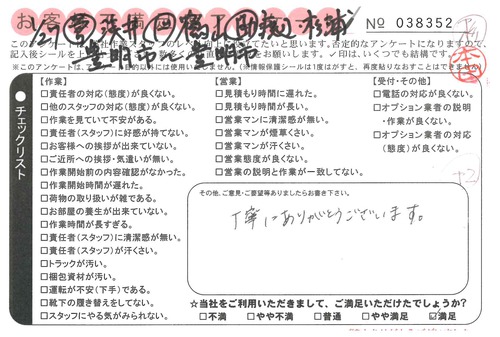 お客
№ 038352
豊明市〜豊明市
記入後シールを上
※このアンケートは、
チェックリスト
【作業】
□責任者の対応(態度)が良くない。
□他のスタッフの対応(態度)が良くない。
□作業を見ていて不安がある。
□責任者(スタッフ)に好感が持てない。
□お客様への挨拶が出来ていない。
□ご近所への挨拶・気遣いが無い。
□作業開始前の内容確認がなかった。
□作業開始時間が遅れた。
□荷物の取り扱いが雑である。
□お部屋の養生が出来ていない。
□作業時間が長すぎる。
□責任者(スタッフ)に清潔感が無い。
□責任者(スタッフ)が汗くさい。
□トラックが汚い。
□梱包資材が汚い。
□運転が不安(下手)である。
□靴下の履き替えをしてない。
□スタッフにやる気がみられない。
【営業】
□見積もり時間に遅れた。
□見積もり時間が長い。
□営業マンに清潔感が無い。
□営業マンが煙草くさい。
□営業マンが汗くさい。
□営業態度が良くない。
□営業の説明と作業が一致してない。
【受付・その他】
□電話の対応が良くない。
□オプション業者の説明
・作業が良くない。
□オプション業者の対応
(態度)が良くない。
その他、ご意見・ご要望等ありましたらお書き下さい。
丁寧にありがとうございます。
☆当社をご利用いただきまして、ご満足いただけたでしょうか?
□不満 □やや不満 □普通 □やや満足 ☑満足